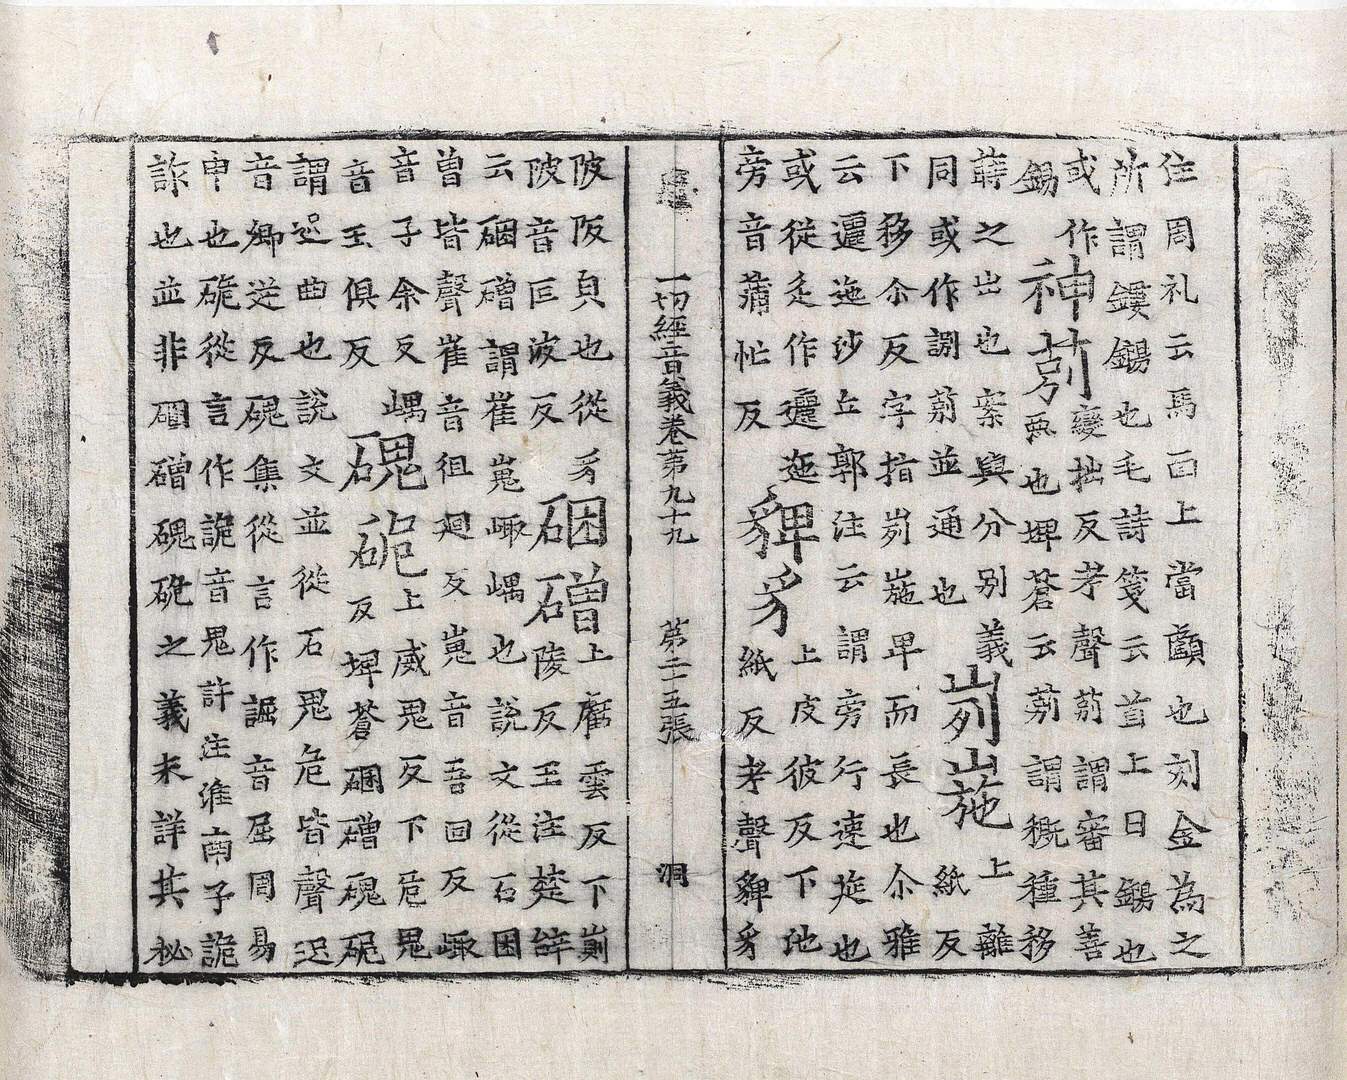 住周礼云馬面上當顱也刻金為之
所謂鏤鍚也毛詩箋云首上曰鍚也
或作
鍚
神莂
變拙反考聲莂謂審其善
兩也埤蒼云莂謂穊種移
蒔之出也案與分別義
同或作䛣莂並通也
峛崺
上離
紙反
下移尒反字指峛崺卑而長也尒雅
云邐迤沙丘郭注云謂旁行連㢮也
或從辵作邐迤
旁音蒲忙反
貏豸
上皮彼反下池
紙反考聲貏豸
一切經音義卷第九十九 第二十五張 洞
陂阪皃也從豸
陂音叵波反
硱磳
上窘雲反下崱
陵反王注楚辭
云硱磳謂崔嵬㟅嵎也說文從石困
曾皆聲崔音徂廻反嵬音吾回反㟅
音子余反嵎
音玉俱反
磈硊
上威鬼反下危鬼
反埤蒼硱磳磈硊
謂迟曲也說文並從石鬼危皆聲迟
音卿逆反磈集從言作䛼音屈周易
申也硊從言作詭音鬼許注淮南子詭
詐也並非硱磳磈硊之義未詳其祕